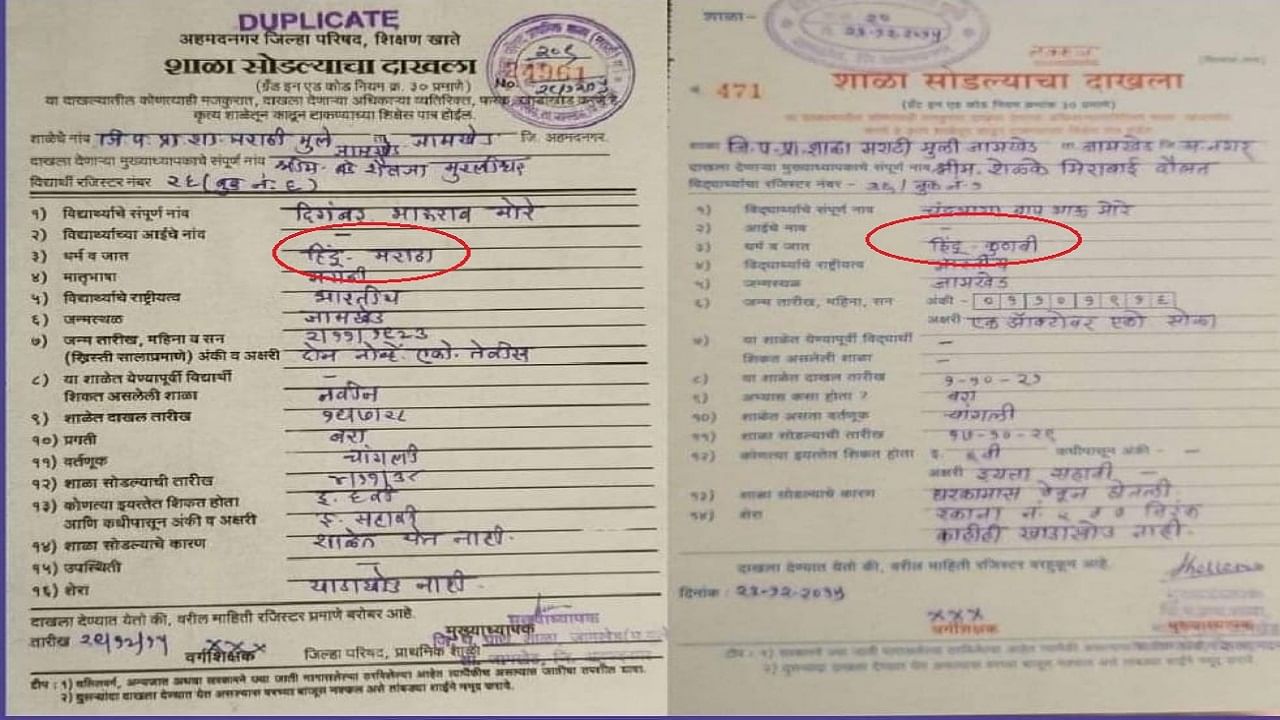 DUPLICATE
अहमदनगर जिल्हा परिषद, शिक्षण खाते
शाळा सोडल्याचा दाखला
(ग्रँट इन एड कोड नियम क्र. ३० प्रमाणे)
या दाखल्यातील कोणत्याही मजकुरात, दाखला देणाऱ्या अधिकाऱ्या व्यतिरिक्त,
कृत्य शाळेतून काढून टाकण्याच्या शिक्षेस पात्र होईल.
शाळेचे नांव जि.प.प्रा.शा. मराठी मुले ता. जामखेड जि. अहमदनगर.
जामखेड
दाखला देणाऱ्या मुख्याध्यापकाचे संपूर्ण नांव श्रीम. शैलजा मुरलीधर
विद्यार्थी रजिस्टर नंबर २६ (बुक नं. ६)
१) विद्यार्थ्याचे संपूर्ण नांव दिगंबर भाऊराव मोरे
२) विद्यार्थ्याच्या आईचे नांव –
३) धर्म व जात हिंदू - मराठा
४) मातृभाषा मराठी
५) विद्यार्थ्याचे राष्ट्रीयत्व भारतीय
६) जन्मस्थळ जामखेड
७) जन्म तारीख, महिना व सन २/११/१९२३
(ख्रिस्ती सालाप्रमाणे) अंकी व अक्षरी दोन नोव्हें. एको. तेवीस
८) या शाळेत येण्यापूर्वी विद्यार्थी –
शिकत असलेली शाळा नवीन
९) शाळेत दाखल तारीख
१०) प्रगती बरा
११) वर्तणूक चांगली
१२) शाळा सोडल्याची तारीख
१३) कोणत्या इयत्तेत शिकत होता इ. ६ वी
आणि कधीपासून अंकी व अक्षरी इ. सहावी
१४) शाळा सोडल्याचे कारण शाळेत येत नाही.
१५) उपस्थिती –
१६) शेरा खाडाखोड नाही.
दाखला देण्यात येतो की, वरील माहिती रजिस्टर प्रमाणे बरोबर आहे.
तारीख
वर्गशिक्षक
मुख्याध्यापक
जिल्हा परिषद, प्राथमिक शाळा
शाळा–
471
शाळा सोडल्याचा दाखला
शाळा जि.प.प्रा.शाळा मराठी मुली जामखेड ता. जामखेड जि. अ.नगर
दाखला देणाऱ्या मुख्याध्यापकाचे संपूर्ण नांव श्रीम. शेळके मिराबाई दौलत
विद्यार्थ्याचा रजिस्टर नंबर -
१) विद्यार्थ्याचे संपूर्ण नाव चंद्रभागा बापू भाऊ मोरे
२) आईचे नाव –
३) धर्म व जात हिंदू - कुणबी
४) विद्यार्थ्याचे राष्ट्रीयत्व भारतीय
५) जन्मस्थळ जामखेड
६) जन्म तारीख, महिना, सन अंकी - ०११०१९१६
अक्षरी एक ऑक्टोबर एको सोळा
७) या शाळेत येण्यापूर्वी विद्यार्थी –
शिकत असलेली शाळा –
८) या शाळेत दाखल तारीख १-१०-२१
९) अभ्यास कसा होता ? बरा
१०) शाळेत असता वर्तणूक चांगली
११) शाळा सोडल्याची तारीख १७-१०-२९
१२) कोणत्या इयत्तेत शिकत होता इ. ६ वी कधीपासून अंकी - –
अक्षरी इयत्ता सहावी –
१३) शाळा सोडल्याचे कारण घरकामास घेवून घेतली
१४) शेरा रकाना नं.
काहीही खाडाखोड नाही.
दाखला देण्यात येतो की, वरील माहिती रजिस्टर बरहुकूम आहे.
दिनांक : २३-१२-२०१५
वर्गशिक्षक
मुख्याध्यापक